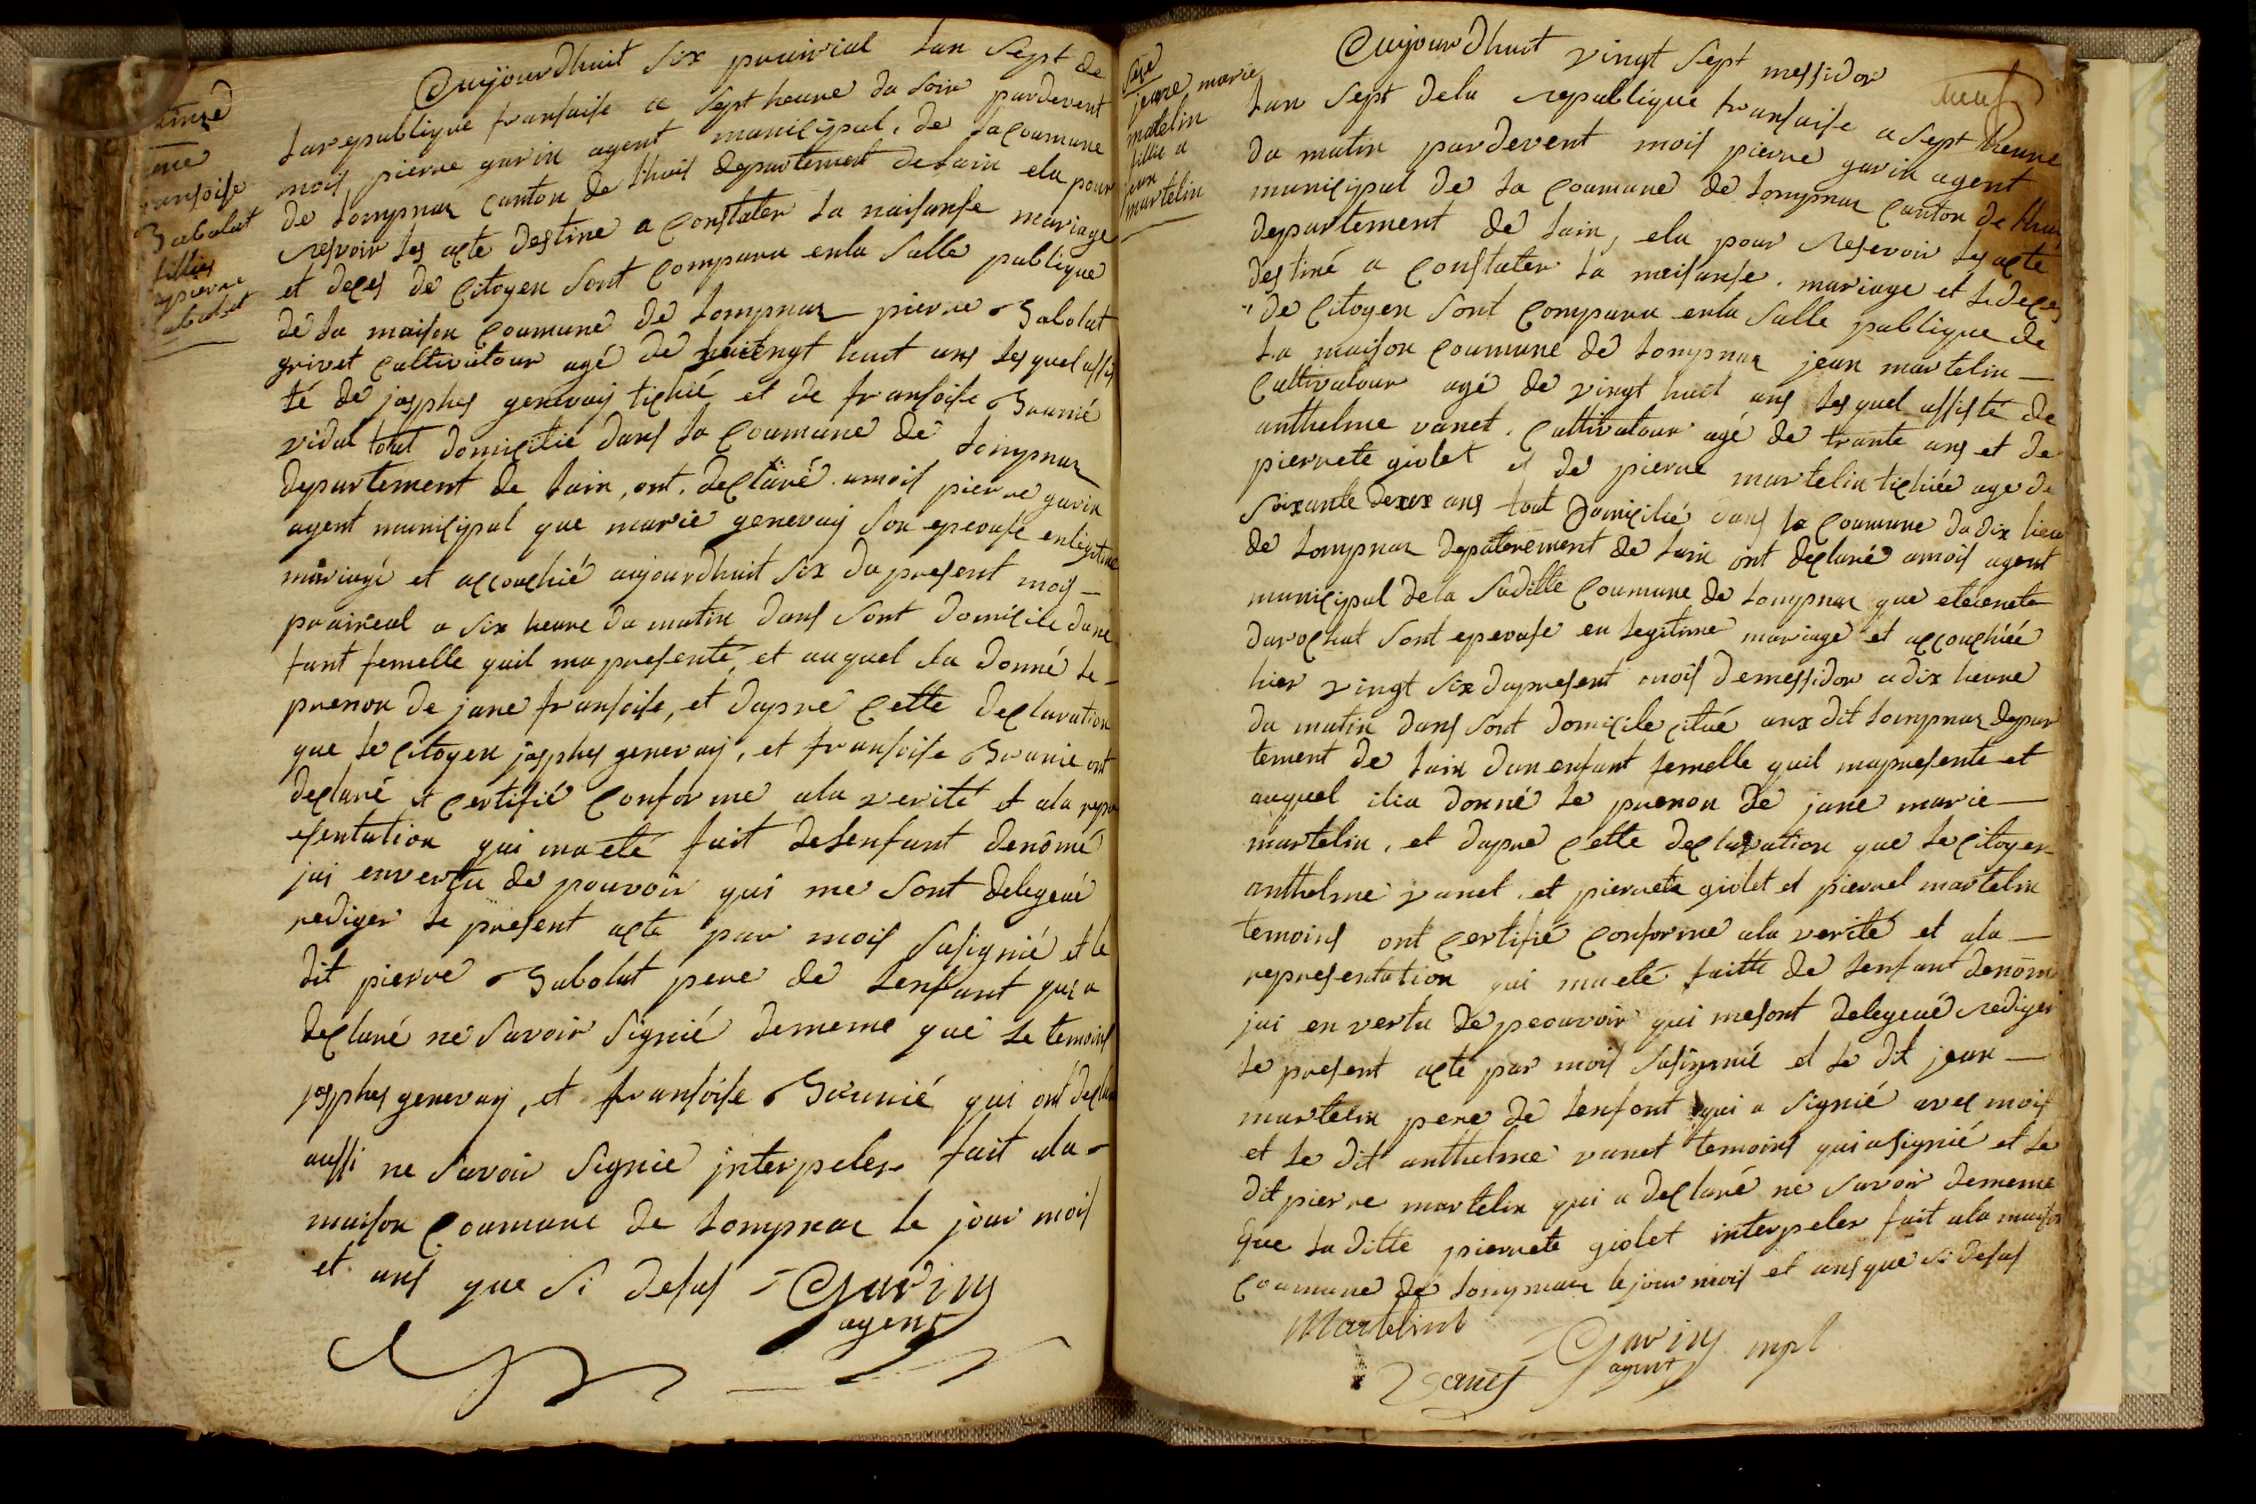 jane
fransoise
Babolat
fillies
a pierre
babolat
Aujourdhuit six prairial lan sept de
la republique fransaise a sept heure du soir pardevent
mois pierre gavin agent municipal, de la coumune
de lompnaz canton de lhuis departement de lain elu pour
resevoir les acte destine a constater la naisanse mariage
et deces de citoyen sont comparu enla salle publique
de la maison coumune de lompnaz pierre Babolat
grivet cultivatour agé de vingt huit ans lesquel assis
té de josphes genevay tichié et de fransoise Brunié
vidal tout domicilié dans la coumune de lompnaz
departement de lain, ont declaré amois pierre gavin
agent municipal que marie genevay son epeouse enlegitime
mariagé et accouchié aujourdhuit six du present mois
praireal a six heure du matin dans sont domicile dune
fant femelle quil ma presenté, et auquel ila donné le
prenon de jane fransoise, et dapre cette declaration
que le citoyen josphes genevay, et fransoise Brunie ont
declaré et certifié conforme ala verité et ala repre
esentation qui ma eté fait delenfant denomé
jai envertu de pouvoir qui me sont delegeué
rediger le present acte par mois susignié et le
dit pierre Babolat pere de lenfant qui a
declaré ne savoir signié dememe que le temoins
josphes genevay, et fransoise Brunié qui ont declaré
aussi ne savoir signie interpeler fait ala
maison coumune de lompnaz le jour mois
et ans que si desus Gavin
agent
jeane marie
matelin
fillie a
jean
martelin
neuf
Aujourdhuit vingt sept messidor
lan sept dela republique fransaise a sept heure
du matin pardevent mois pierre gavin agent
municipal de la coumune de lompnaz canton de lhuis
departement de lain, elu pour resevoir les acte
destiné a constater la naisanse, mariage et le deces
de citoyen sont comparu enla salle publique de
la maison coumune de lompnaz jean martelin
cultivatour agé de vingt huit ans lesquel assisté de
anthelme vanet, cultivatour agé de trante ans et de
pierrete giolet et de pierre martelin tichiée age de
soixante deux ans tout domicilié dans la coumune du dix lieu
de lompnaz depaterement de lain ont declaré amois agent
municipal dela sudille coumune de lompnaz que etienete
durochat sont epeouse en legitime mariage et accouchiée
hier vingt six dupresent mois demessidor a dix heure
du matin dans sont domicile citué aux dit lompnaz depar
tement de lain dun enfant femelle quil mapresente et
auquel ilia donné le prenon de jane marie
martelin, et dapre cette declaration que le citoyen
anthelme vanet, et pierrete giolet et pierrel martelin
temoins ont certifié conforme ala verité et ala
representation qui ma eté faitte de lenfant denomé
jai en vertu de peouvoir qui mesont delegeué rediger
le present acte par mois susignié et le dit jean
martelin pere de lenfont qui a signié avec mois
et le dit anthelme vanet temoins qui a signié et le
dit pierre martelin qui a declaré ne savoir dememe
que la ditte pierrete giolet interpeler fait ala maison
coumune de lompnaz le jour mois et ans que si desus
Martelint
Gavin mpl
agent
Vanet